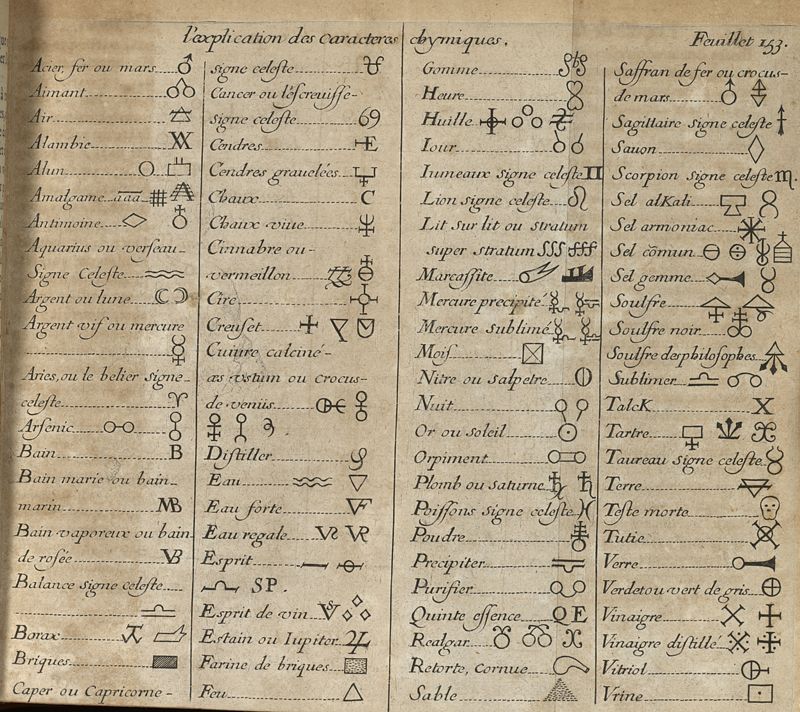 l'explication des caracteres chymiques.
Feuillet 153.
Acier, fer ou mars
Aimant
Air
Alambic
Alun
Amalgame aaa
Antimoine
Aquarius ou verseau
Signe Celeste
Argent ou lune
Argent vif ou mercure
Aries, ou le belier signe
celeste
Arsenic
Bain B
Bain marie ou bain
marin MB
Bain vaporeux ou bain
de rosée VB
Balance signe celeste
Borax
Briques
Caper ou Capricorne
signe celeste
Cancer ou l'escreuisse
signe celeste 69
Cendres E
Cendres grauelées
Chaux C
Chaux viue
Cinnabre ou
vermeillon
Cire
Creuset
Cuiure calciné
æs ustum ou crocus
de venus
Distiller
Eau
Eau forte
Eau regale
Esprit
SP.
Esprit de vin
Estain ou Iupiter
Farine de briques
Feu
Gomme
Heure
Huille
Iour
Iumeaux signe celeste
Lion signe celeste
Lit sur lit ou stratum
super stratum SSS
Marcassite
Mercure precipité
Mercure sublimé
Mois
Nitre ou salpetre
Nuit
Or ou soleil
Orpiment
Plomb ou saturne
Poissons signe celeste
Poudre
Precipiter
Purifier
Quinte essence QE
Realgar
Retorte, cornue
Sable
Saffran de fer ou crocus
de mars
Sagittaire signe celeste
Sauon
Scorpion signe celeste
Sel alKali
Sel armoniac
Sel cõmun
Sel gemme
Soulfre
Soulfre noir
Soulfre des philosophes
Sublimer
TalcK X
Tartre
Taureau signe celeste
Terre
Teste morte
Tutie
Verre
Verdet ou vert de gris
Vinaigre
Vinaigre distillé
Vitriol
Vrine